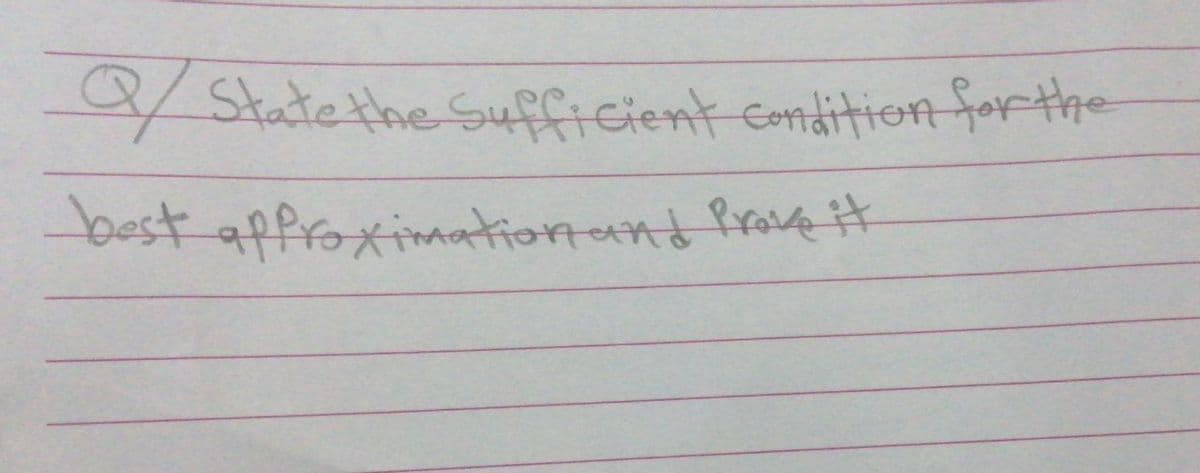 Q/ State the Sufficient condition for the
best approximation and Prove it